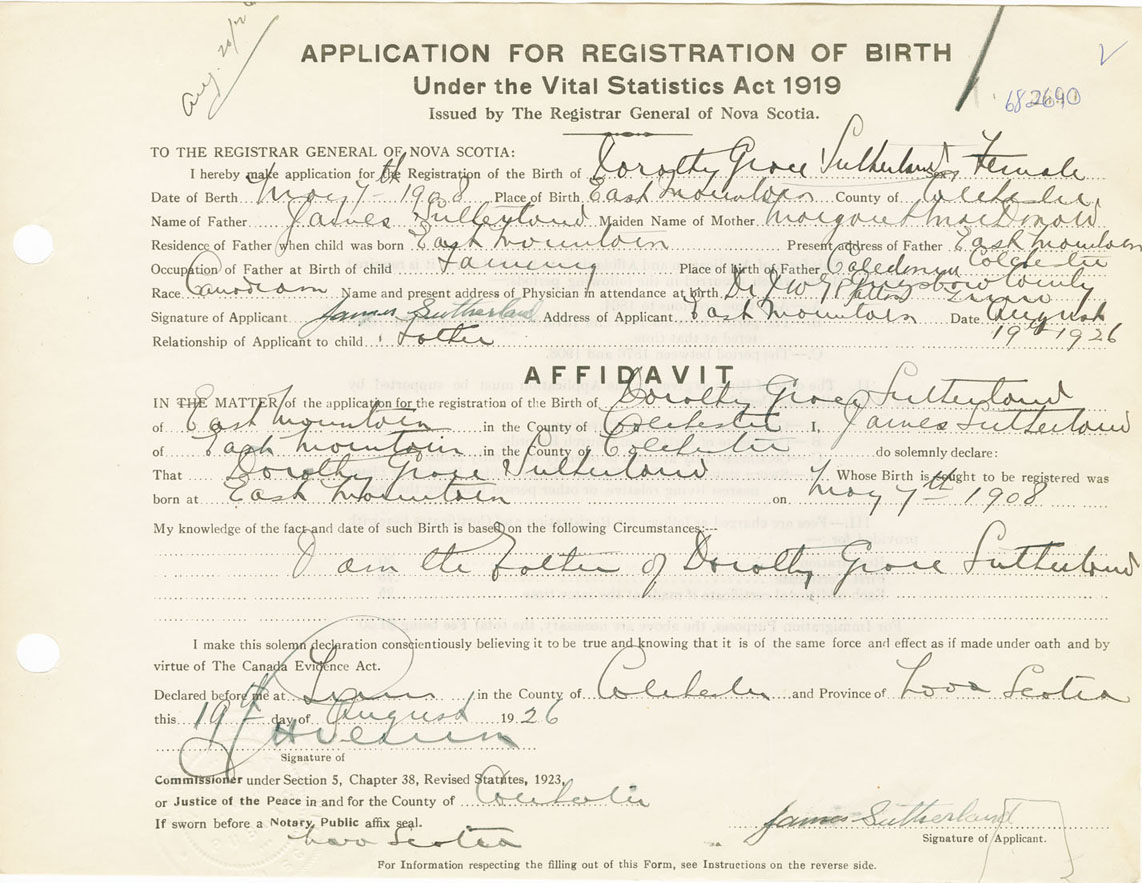 Aug. 20/26
682690
APPLICATION FOR REGISTRATION OF BIRTH
Under the Vital Statistics Act 1919
Issued by The Registrar General of Nova Scotia.
TO THE REGISTRAR GENERAL OF NOVA SCOTIA:
I hereby make application for the Registration of the Birth of Dorothy Grace Sutherland Sex Female
Date of Berth May 7th 1908 Place of Birth East Mountain County of Colchester
Name of Father James Sutherland Maiden Name of Mother Margaret MacDonald
Residence of Father when child was born East Mountain Present address of Father East Mountain
Colchester
Occupation of Father at Birth of child Farming Place of Birth of Father Caledonia
Race Canadian Name and present address of Physician in attendance at birth Dr Truro
Signature of Applicant James Sutherland Address of Applicant East Mountain Date August
19th 1926
Relationship of Applicant to child Father
AFFIDAVIT
IN THE MATTER of the application for the registration of the Birth of Dorothy Grace Sutherland
of East Mountain in the County of Colchester I, James Sutherland
of East Mountain in the County of Colchester do solemnly declare:
That Dorothy Grace Sutherland Whose Birth is sought to be registered was
born at East Mountain on May 7th 1908
My knowledge of the fact and date of such Birth is based on the following Circumstances:—
I am the Father of Dorothy Grace Sutherland
I make this solemn declaration conscientiously believing it to be true and knowing that it is of the same force and effect as if made under oath and by
virtue of The Canada Evidence Act.
Declared before me at Truro in the County of Colchester and Province of Nova Scotia
this 19th day of August 1926
Signature of
Commissioner under Section 5, Chapter 38, Revised Statutes, 1923,
or Justice of the Peace in and for the County of Colchester
If sworn before a Notary Public affix seal.
Nova Scotia
James Sutherland
Signature of Applicant.
For Information respecting the filling out of this Form, see Instructions on the reverse side.